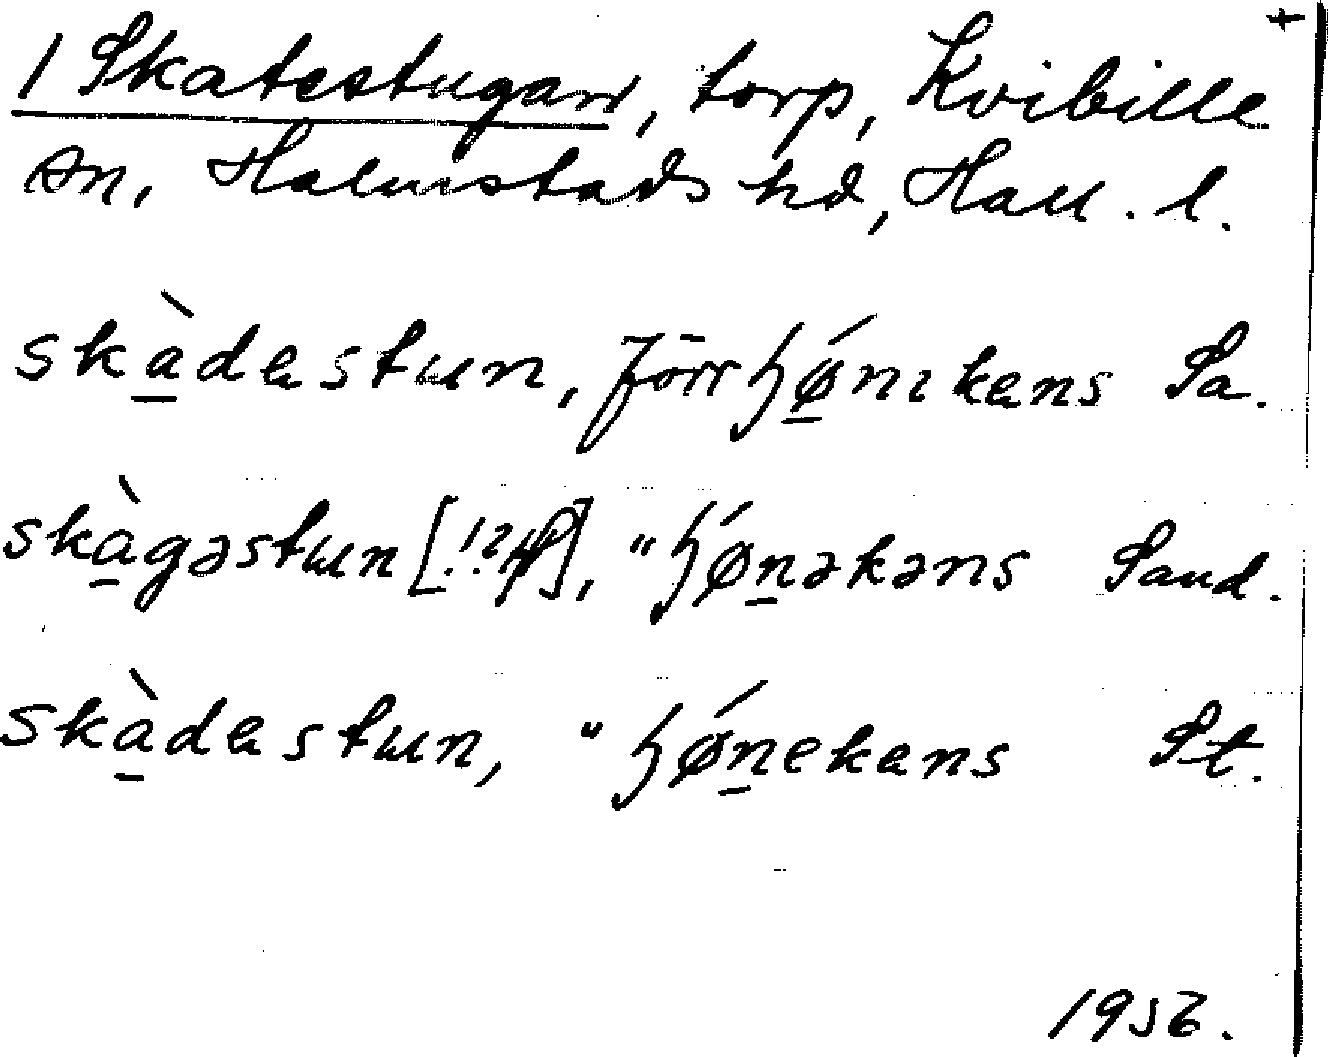 +
1 Skatestugan, torp, Kvibille
sn, Halmstads hd, Hall. l.
skàdestun, förr hǿnekens Sa.
skàgəstun [!? ], " hǿnəkəns Sand.
skàdestun, " hǿnekens St.
1956.